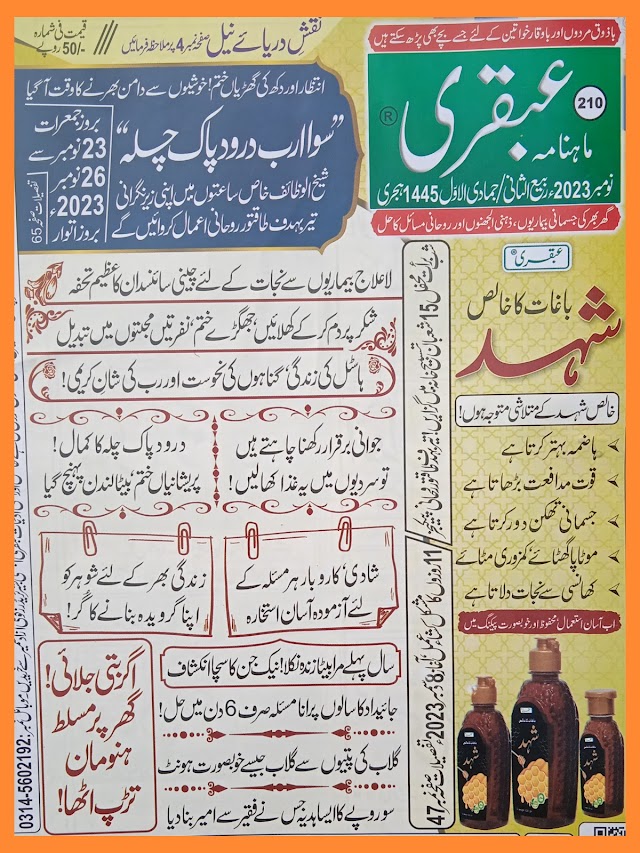 باذوق مردوں اور باوقار خواتین کے لئے جسے بچے بھی پڑھ سکتے ہیں
210
ماہنامہ
عبقری
®
نومبر 2023ء ربیع الثانی/ جمادی الاول 1445 ہجری
گھر بھر کی جسمانی بیماریوں، ذہنی الجھنوں اور روحانی مسائل کا حل
نقش دریائے نیل صفحہ نمبر 4 پر ملاحظہ فرمائیں
قیمت فی شمارہ
50/- روپے
انتظار اور دکھ کی گھڑیاں ختم! خوشیوں سے دامن بھرنے کا وقت آگیا
”سوا ارب درود پاک چلہ“
شیخ الوظائف خاص ساعتوں میں اپنی زیر نگرانی
تیر بہدف طاقتور روحانی اعمال کروائیں گے
بروز جمعرات
23 نومبر سے
26 نومبر
2023ء
بروز اتوار
تفصیلات صفحہ نمبر 65
لاعلاج بیماریوں سے نجات کے لئے چینی سائنسدان کا عظیم تحفہ
شکر پر دم کر کے کھلائیں، جھگڑے ختم، نفرتیں محبتوں میں تبدیل
ہاسٹل کی زندگی، گناہوں کی نحوست اور رب کی شان کریمی!
جوانی برقرار رکھنا چاہتے ہیں
تو سردیوں میں یہ غذا کھا لیں!
درود پاک چلہ کا کمال!
پریشانیاں ختم، بیٹا لندن پہنچ گیا
شادی، کاروبار ہر مسئلہ کے
لئے آزمودہ آسان استخارہ
زندگی بھر کے لئے شوہر کو
اپنا گرویدہ بنانے کا گر!
سال پہلے مرا بیٹا زندہ نکلا! نیک جن کا سچا انکشاف
جائیداد کا سالوں پرانا مسئلہ صرف 6 دن میں حل!
گلاب کی پتیوں سے گلاب جیسے خوبصورت ہونٹ
سو روپے کا ایسا ہدیہ جس نے فقیر سے امیر بنا دیا
اگر بتی جلائی!
گھر پر مسلط
ہنومان
تڑپ اٹھا!
0314-5602192
11 روزوں کا
8 دسمبر 2023ء تفصیلات صفحہ نمبر 47
عبقری®
باغات کا خالص
شہد
خالص شہد کے متلاشی متوجہ ہوں!
ہاضمہ بہتر کرتا ہے
قوت مدافعت بڑھاتا ہے
جسمانی تھکن دور کرتا ہے
موٹاپا گھٹائے، کمزوری مٹائے
کھانسی سے نجات دلاتا ہے
اب آسان استعمال، محفوظ اور خوبصورت پیکنگ میں
شہد
شہد
شہد